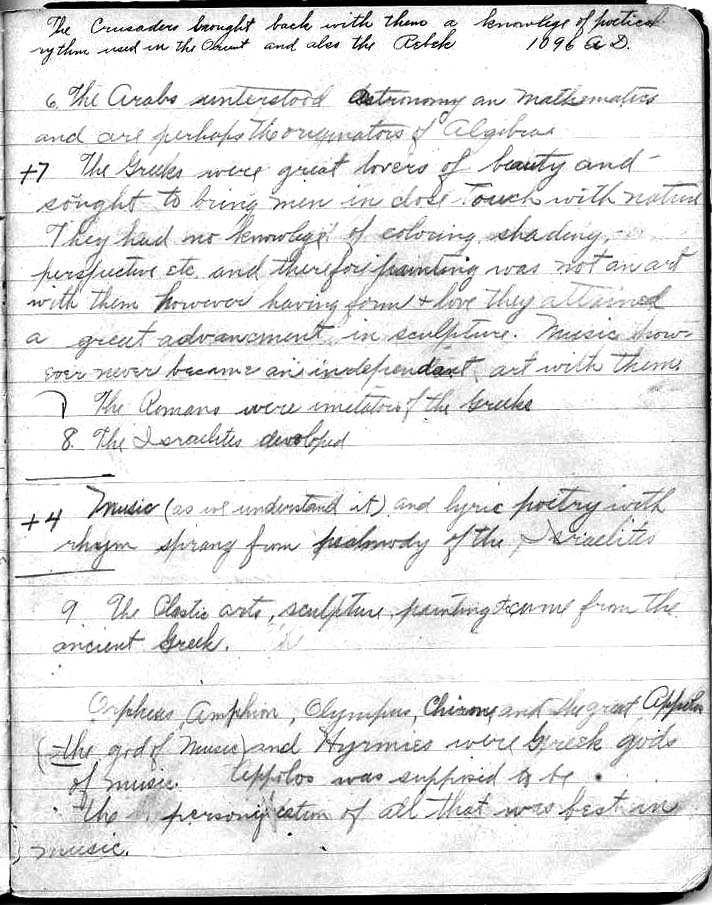 The Crusaders brought back with them a knowlege of poetical
rythm used in the Orient and also the Rebek 1096 A D.
6. The Arabs understood Astronomy an Mathematics
and are perhaps the originators of Algebra
+7 The Greeks were great lovers of beauty and
sought to bring men in close Touch with nature
They had no knowlege of coloring, shading,
perspective etc. and therefore painting was not an art
with them however having form + love they attained
a great advancment in sculpture. Music how-
ever never became an independant art with them.
7 The Romans were imitators of the Greeks
8. The Israelites developed
+4 Music (as we understand it) and lyric poetry with
rhym spirang from psalmody of the Israelites
9 The Plastic arts, sculpture, painting + come from the
ancient Greek.
Orpheus, Amphion, Olympus, Chirone and the great Appolos
(=the god of Music) and Hyrmies were Greek gods
of music. Appolos was supposed to be
the personification of all that was best in
music.